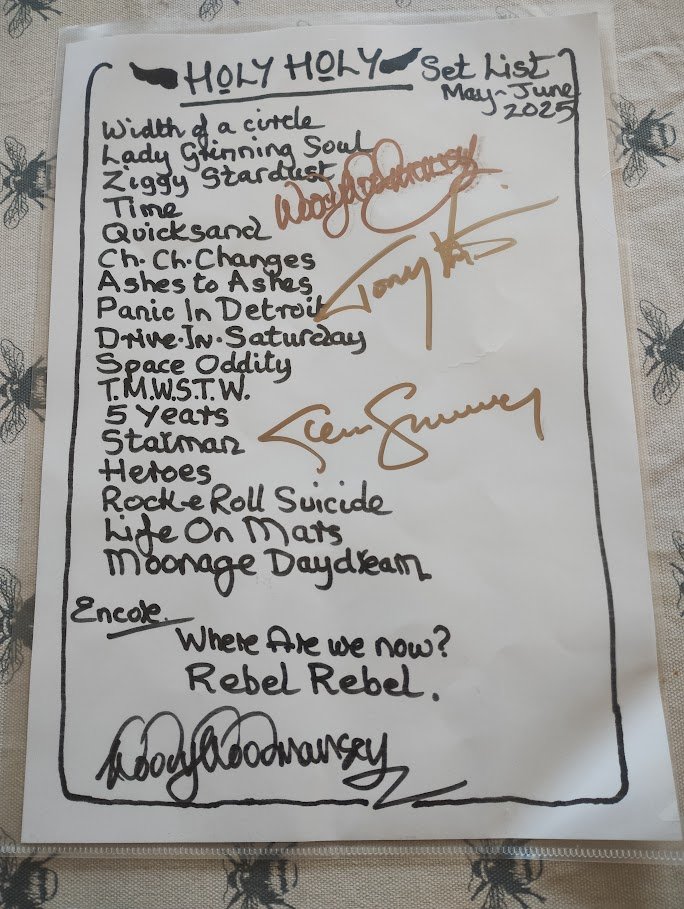 HOLY HOLY Set List
May-June
2025
Width of a circle
Lady Grinning Soul
Ziggy Stardust
Time
Quicksand
Ch.Ch.Changes
Ashes to Ashes
Panic In Detroit
Drive.In.Saturday
Space Oddity
T.M.W.S.T.W.
5 Years
Starman
Heroes
Rock e Roll Suicide
Life On Mars
Moonage Daydream
Encore.
Where Are we now?
Rebel Rebel.
Woody Woodmansey
Woody Woodmansey
Tony